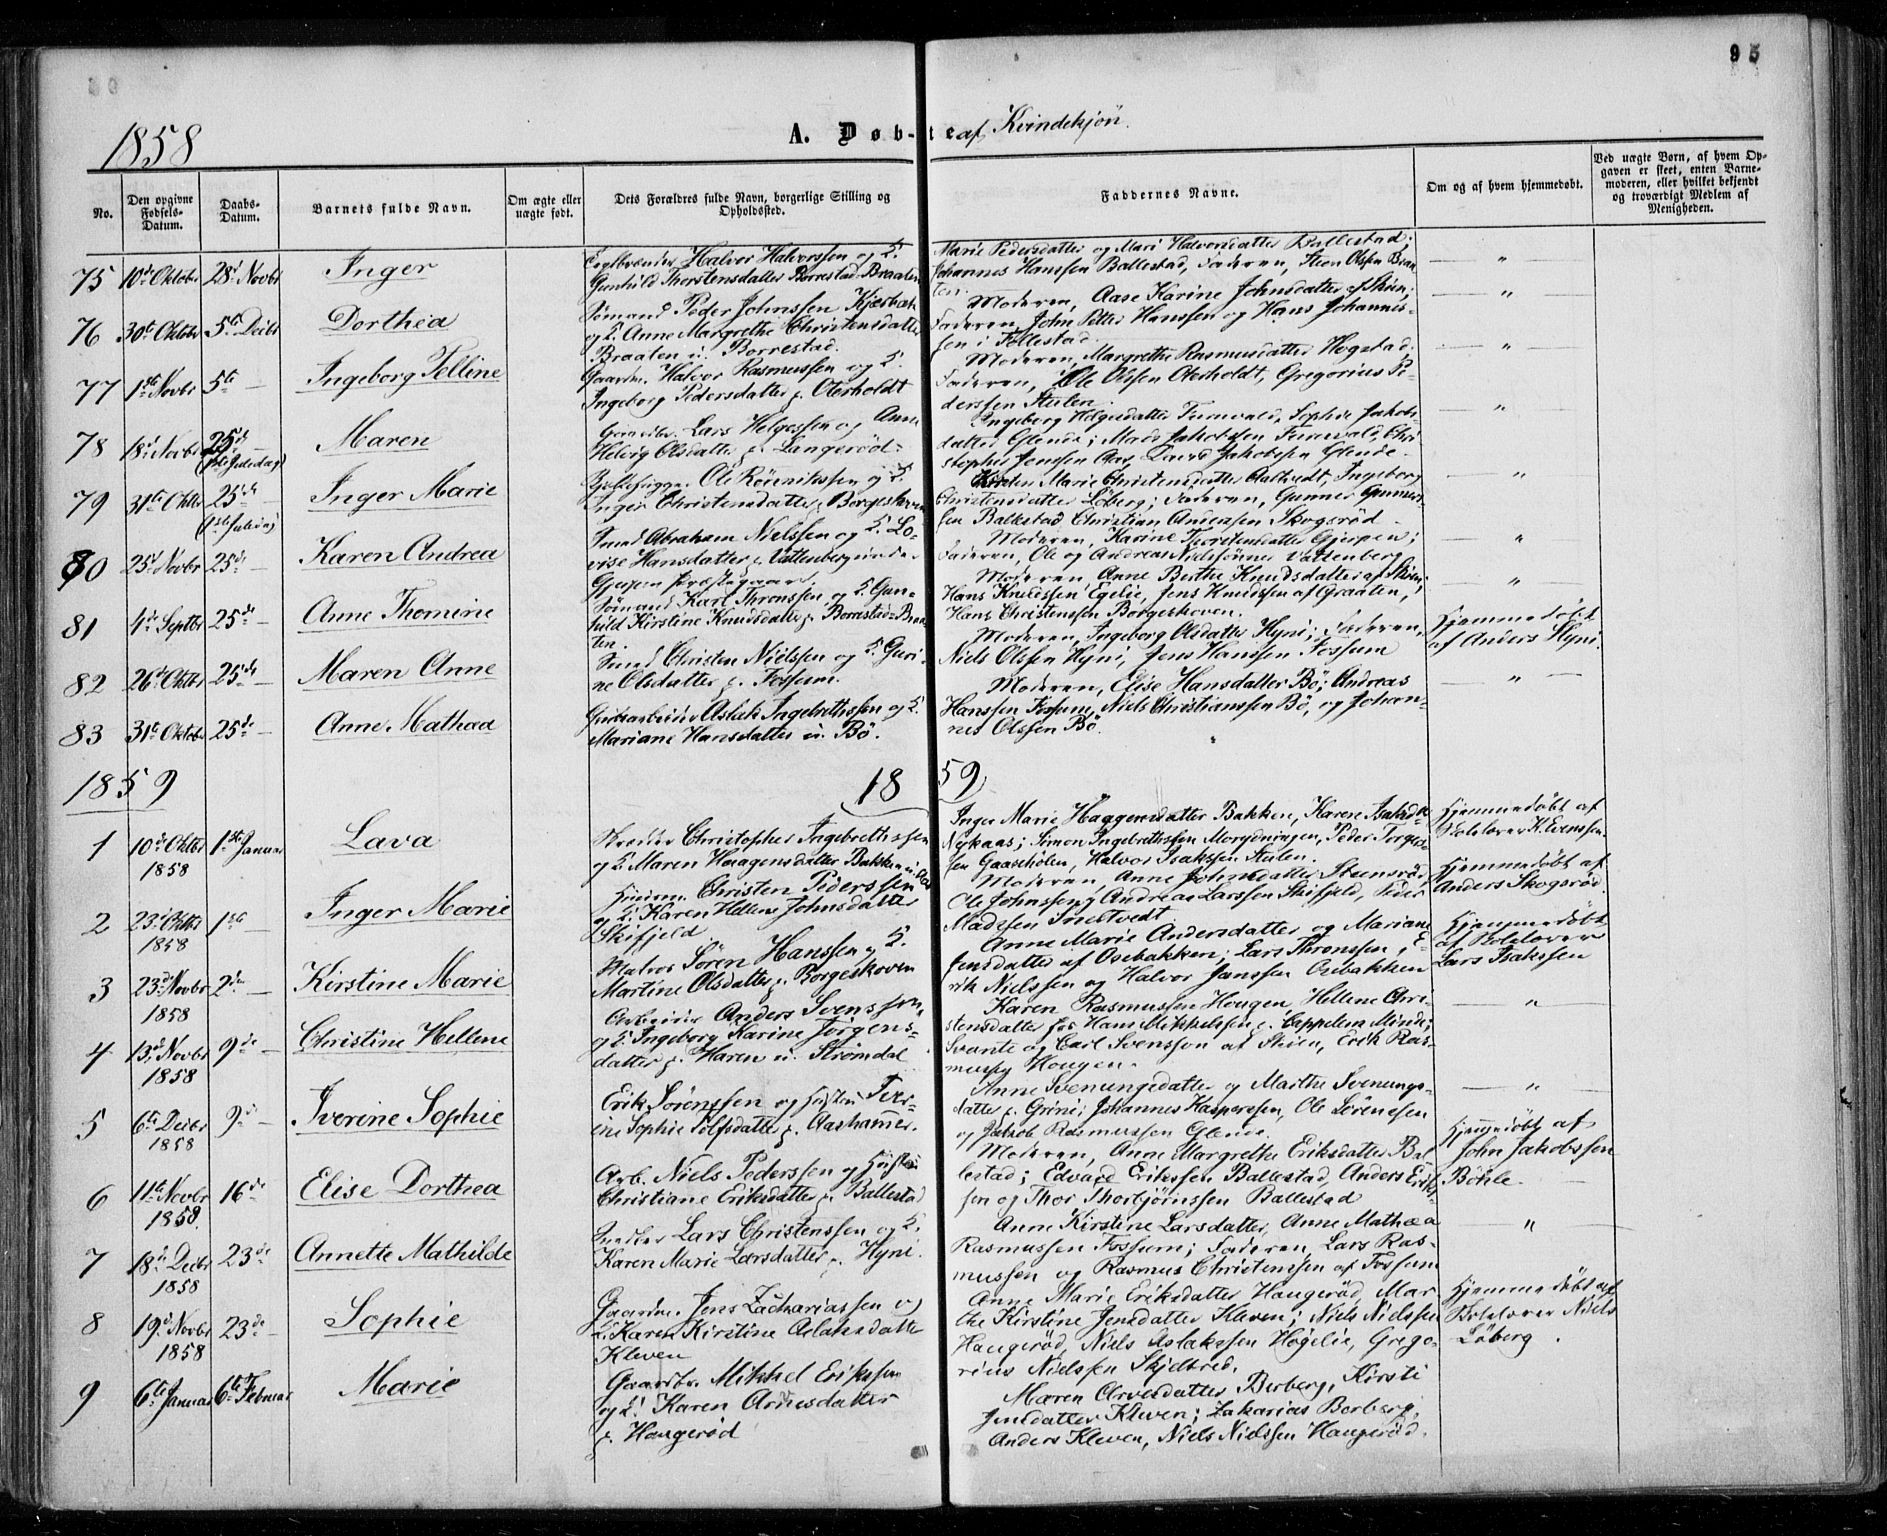 95
1858
A. Døbte af Kvindekjøn.
No.
Den opgivne Fødsels-Datum.
Daabs-Datum.
Barnets fulde Navn.
Om ægte eller uægte født.
Dets Forældres fulde Navn, borgerlige Stilling og Opholdssted.
Faddernes Navne.
Om og af hvem hjemmedøbt.
Ved uægte Børn, af hvem Opgaven er skeet, enten Barnemoderen, eller hvilket bekjendt og troværdigt Medlem af Menigheden.
75 10d Oktober 28d Novbr Inger
Halvor Halvorssen og H.
Gunhild Thorstensdatter Borrestad-Braaten
Marie Pedersdatter og Mari Halvorsdatter Ballestad;
Johannes Hanssen Ballestad, Faderen, Steen Olsen Braa-
ten.
76 30te Oktober 5te Decbr Dorthea
Sömand Peder Johnssen Kjærbæk
og H. Anne Margrethe Christensdatter
Braaten u. Borrestad.
Moderen, Aase Karine Johnsdatter af Skien;
Faderen, John Petter Hanssen og Hans Johannes-
sen i Follestad.
77 1ste Novbr 5te Ingeborg Telline
Gaardm. Halvor Rasmussen og H.
Ingeborg Pedersdatter p. Oterholdt
Moderen, Margrethe Rasmusdatter Hogstad;
Faderen, Ole Olssen Oterholdt, Gregorius Pe-
derssen Stulen.
78 18d Novbr 25de (1ste Juledag) Maren
Lars Helgessen og Anne
Helvig Olsdatter p. Langerød.
Ingeborg Helgesdatter Furuvald, Sophie Jakobs-
datter Glende; Mads Jakobssen Furuvald, Chri-
stopher Jenssen Aas, Jakobssen Glende.
79 31te Oktbr 25de (1ste Juledag) Inger Marie
Ole Rönnikssen og H.
Inger Christensdatter p. Borgeskoven
Kirsten Marie Christensdatter, Ingeborg
Christensdatter Löberg; Faderen, Gunner Gunners-
sen Ballestad, Christian Anderssen Skogsrød.
80 25d Novbr 25de Karen Andrea
Smed Abraham Nielssen og H. Lo-
vise Hansdatter p. Vattenberg under
Gjerpen Præstegaard.
Moderen, Karine Thorstensdatter Gjerpen;
Faderen, Ole og Andreas Nielssönner Vattenberg
81 4de Septbr 25de Anne Thomine
Sömand Karl Thronssen og H. Gun-
hild Kirstine Knudsdatter p. Borrestad-Braa-
ten.
Moderen, Anne Berthe Knudsdatter af Skien;
Hans Knudssen Egelie, Jens Knudssen af Graaten,
Hans Christenssen Borgeskoven.
82 26d Oktbr 25de Maren Anne
Smed Christen Nielssen og H. Guri-
ne Olsdatter p. Fossum.
Moderen, Ingeborg Olsdatter Hyni; Faderen,
Niels Olssen Hyni, Jens Hanssen Fossum
Hjemmedøbt
af Anders Hyni.
83 31te Oktober 25de Anne Mathea
Grubearbeider Aslak Ingebrethssen og H.
Mariane Hansdatter u. Bö.
Moderen, Elise Hansdatter Bö; Andreas
Hanssen Fossum, Niels Christianssen Bö, og Johan-
nes Olssen Bö.
1859 1859
1 10d Oktbr 1858 1ste Januar Lava
Skredder Christopher Ingebrethssen
og H. Maren Haagensdatter Bakken u. Aas
Inger Marie Haagensdatter Bakken, Karen Isaksd.
Nykaas; Simon Ingebrethssen, Peder Torges-
sen Gaasehölen, Halvor Isakssen Stulen.
Hjemmedøbt af
Skolelærer K. Evenssen.
2 23d Oktbr 1858 1ste Inger Marie
Huusm. Christen Pederssen
og H. Karen Hellene Johnsdatter
Skifjeld
Moderen, Anne Johnsdatter Steensröd,
Ole Johnssen og Andreas Larssen Skifjeld, Peder
Madssen Smedtvedt.
Hjemmedøbt af
Anders Skogsrød.
3 23d Novbr 1858 2den Kirstine Marie
Matros Sören Hanssen og H.
Martine Olsdatter p. Borgeskoven
Anne Marie Andersdatter og Mariane
Jensdatter af Osebakken; Lars Thronssen, E-
rik Nielssen og Halvor Janssen Osebakken
Hjemmedøbt
af Skolelærer
Lars Isakssen
4 13d Novbr 1858 9de Christine Hellene
Arbeider Anders Svensson
og H. Ingeborg Karine Jörgens-
datter p. Haren u. Strømdal
Karen Rasmussen Hougen, Hellene Chri-
stensdatter for Hans Mikkelssen p. Cappelens Minde;
Svante og Carl Svensson af Skien, Erik Ras-
mussen Hougen.
5 6te Decbr 1858 9de Iverine Sophie
Erik Sörenssen og Hustru Iver-
ine Sophie Rolfsdatter p. Aashammer.
Anne Svenungsdatter og Marthe Svenungs-
datter p. Grini; Johannes Kasperssen, Ole Sörenssen
og Jakob Rasmussen Glende.
6 11te Novbr 1858. 16de Elise Dorthea
Arb. Niels Pederssen og Hustru
Christiane Eriksdatter p. Ballestad
Moderen, Anne Margrethe Eriksdatter Bal-
lestad; Edvard Erikssen Ballestad, Anders Eriks-
sen og Thor Thorbjörnssen Ballestad
Hjemmedøbt af
John Jakobssen
Böhle.
7 18de Decbr 1858 23de Annette Mathilde
Lars Christenssen og H.
Karen Marie Larsdatter p. Hyni.
Anne Kirstine Larsdatter, Anne Mathea
Rasmussen Fossum; Faderen, Lars Ras-
mussen og Rasmus Christenssen af Fossum
8 19d Novbr 1858 23de Sophie
Gaardm. Jens Zachariassen og
H. Karen Kirstine Aslaksdatter
Kleven
Anne Marie Eriksdatter Haugeröd, Mar-
the Kirstine Jensdatter Kleven; Niels Nielssen
Haugeröd, Niels Aslakssen Högelie, Grego-
rius Nielssen Skjelbred.
Hjemmedøbt af
Skolelærer Niels
Löberg.
9 6te Januar 6te Februar Marie
Gaardbr. Mikkel Erikssen
og H. Karen Arvesdatter
p. Haugeröd
Maren Arvesdatter Berberg, Kirsti
Jensdatter Kleven; Zakarias Berberg,
Anders Kleven, Niels Nielssen Haugeröd.